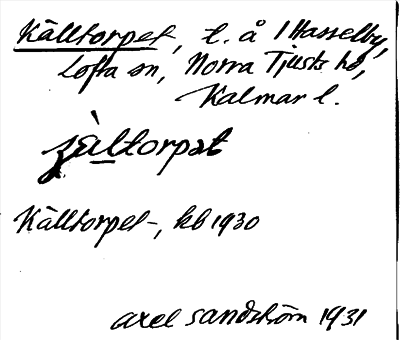 Källtorpet, t. å 1 Hasselby,
Lofta sn, Norra Tjusts hd,
Kalmar l.
ȷàltorpat
Källtorpet, kb 1930
Axel Sandström 1931